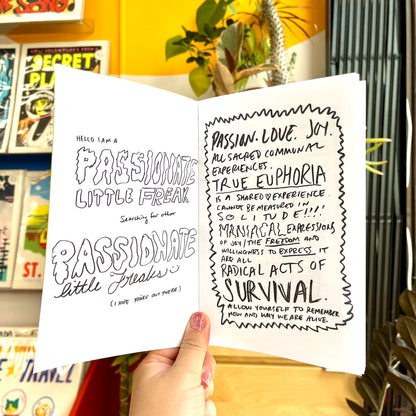 NEW ADVENTURES FROM
SECRET
PLA
ST.
TRAVEL
HELLO I AM A
PASSIONATE
LITTLE FREAK
Searching for other
PASSIONATE
little freaks
(I KNOW YOU'RE OUT THERE)
PASSION. LOVE. JOY.
ALL SACRED COMMUNAL
EXPERIENCES.
TRUE EUPHORIA
IS A SHARED EXPERIENCE.
CANNOT BE MEASURED IN
SOLITUDE!!!!
MANIACAL EXPRESSIONS
OF JOY/THE FREEDOM AND
WILLINGNESS TO EXPRESS IT
ARE ALL
RADICAL ACTS OF
SURVIVAL.
ALLOW YOURSELF TO REMEMBER
HOW AND WHY WE ARE ALIVE.